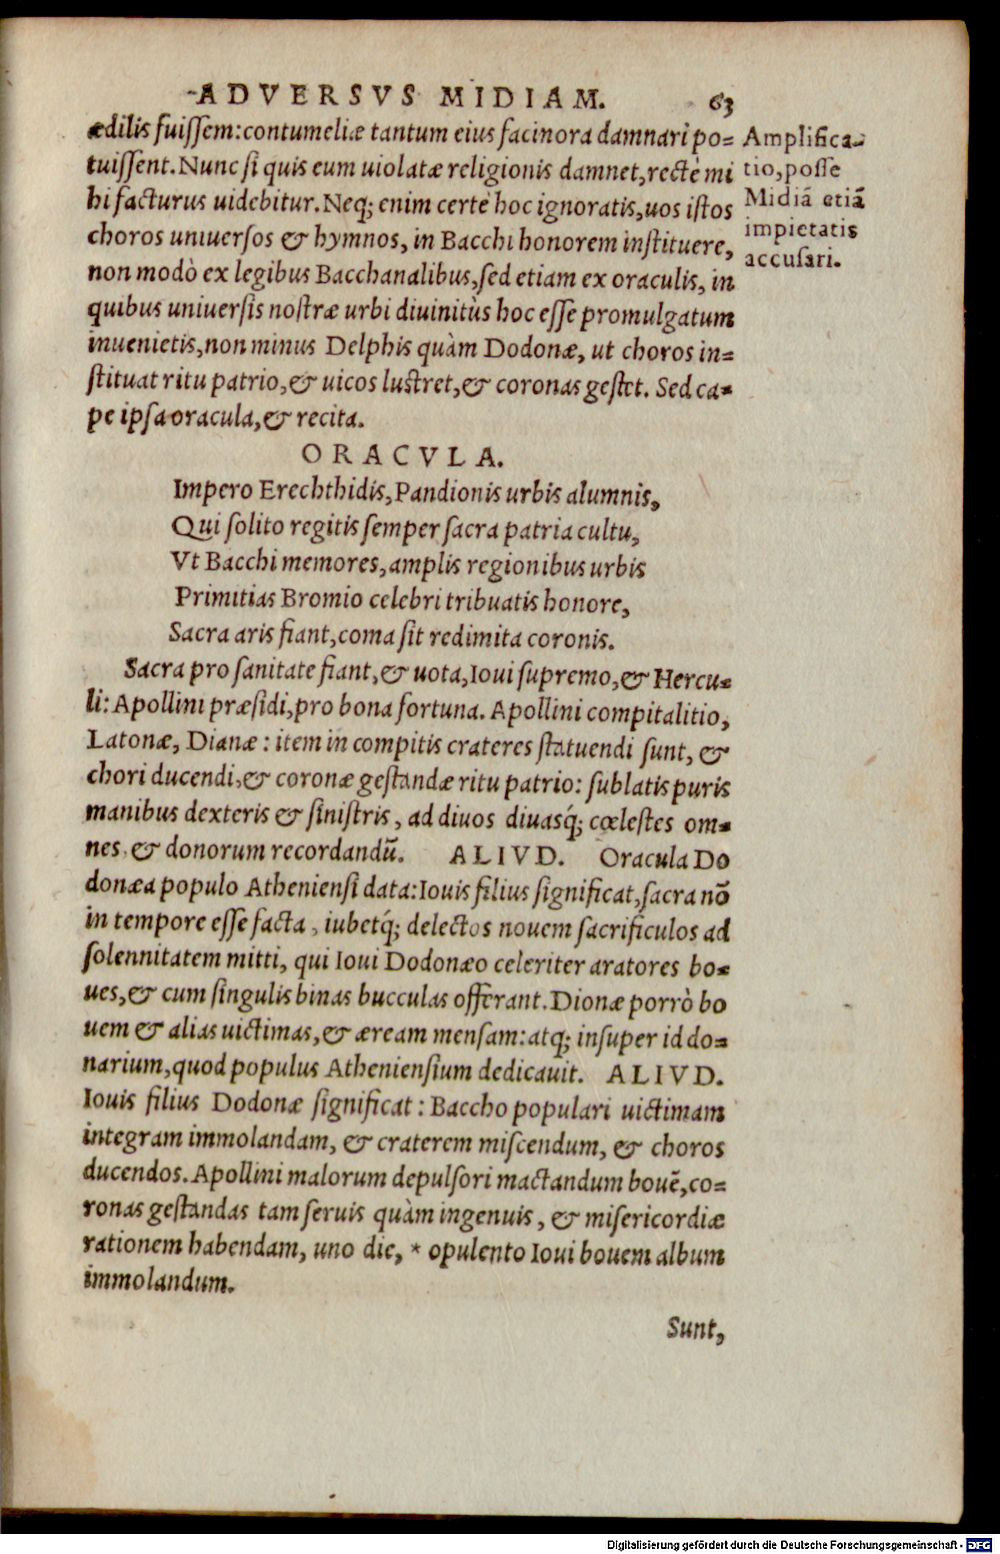 ADVERSVS MIDIAM. 63
ædilis fuiſſem: contumeliæ tantum eius facinora damnari po=
tuiſſent. Nunc ſi quis eum uiolatæ religionis damnet, rectè mi
hi facturus uidebitur. Neq; enim certè hoc ignoratis, uos iſtos
choros uniuerſos & hymnos, in Bacchi honorem inſtituere,
non modò ex legibus Bacchanalibus, ſed etiam ex oraculis, in
quibus uniuerſis noſtræ urbi diuinitùs hoc eſſe promulgatum
inuenietis, non minus Delphis quàm Dodonæ, ut choros in=
ſtituat ritu patrio, & uicos luſtret, & coronas geſtet. Sed ca=
pe ipſa oracula, & recita.
Amplifica-
tio, poſſe
Midiā etiā
impietatis
accuſari.
ORACVLA.
Impero Erechthidis, Pandionis urbis alumnis,
Qui ſolito regitis ſemper ſacra patria cultu,
Vt Bacchi memores, amplis regionibus urbis
Primitias Bromio celebri tribuatis honore,
Sacra aris fiant, coma ſit redimita coronis.
Sacra pro ſanitate fiant, & uota, Ioui ſupremo, & Hercu=
li: Apollini præſidi, pro bona fortuna. Apollini compitalitio,
Latonæ, Dianæ: item in compitis crateres ſtatuendi ſunt, &
chori ducendi, & coronæ geſtandæ ritu patrio: ſublatis puris
manibus dexteris & ſiniſtris, ad diuos diuasq́; cœleſtes om=
nes, & donorum recordandū. ALIVD. Oracula Do
donæa populo Athenienſi data: Iouis filius ſignificat, ſacra nō
in tempore eſſe facta, iubetq́; delectos nouem ſacrificulos ad
ſolennitatem mitti, qui Ioui Dodonæo celeriter aratores bo=
ues, & cum ſingulis binas bucculas offerant. Dionæ porrò bo
uem & alias uictimas, & æream menſam: atq; inſuper id do=
narium, quod populus Athenienſium dedicauit. ALIVD.
Iouis filius Dodonæ ſignificat: Baccho populari uictimam
integram immolandam, & craterem miſcendum, & choros
ducendos. Apollini malorum depulſori mactandum bouē, co=
ronas geſtandas tam ſeruis quàm ingenuis, & miſericordiæ
rationem habendam, uno die, * opulento Ioui bouem album
immolandum.
Sunt,
Digitalisierung gefördert durch die Deutsche Forschungsgemeinschaft - DFG